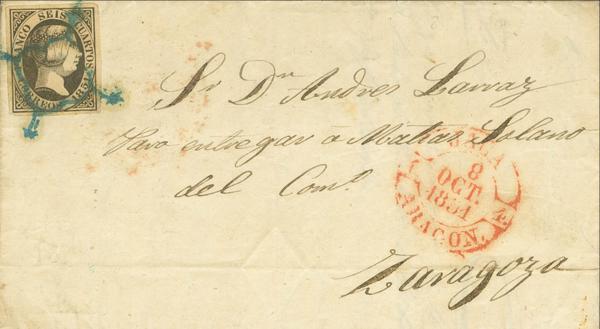 FRANCO SEIS CUARTOS
CORREOS 1851
Sr Dn Andres Larraz
Para entregar á Matias Solano
del Com.º
8
OCT.
1851
ARAGON.
Zaragoza